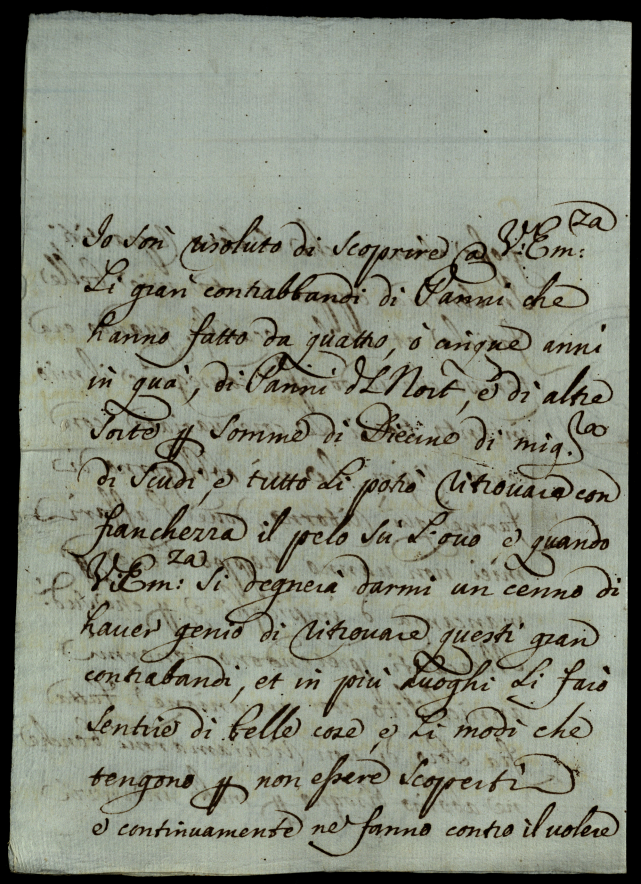 Io son risoluto di scoprire a V: Em:za
Li gran contrabbandi di Panni che
hanno fatto da quattro, ò cinque anni
in quà, di Panni d L Nort, e di altre
sorte p somme di Diecine di mig.
di scudi, e tutto Li potrò ritrovare con
franchezza il pelo sù L'ovo, e quando
V: Em:za si degnerà darmi un cenno di
haver genio di ritrovare questi gran
contrabandi, et in più Luoghi Li farò
sentire di belle cose, e Li modi che
tengono p non essere scoperti
e continuamente ne fanno contro il volere